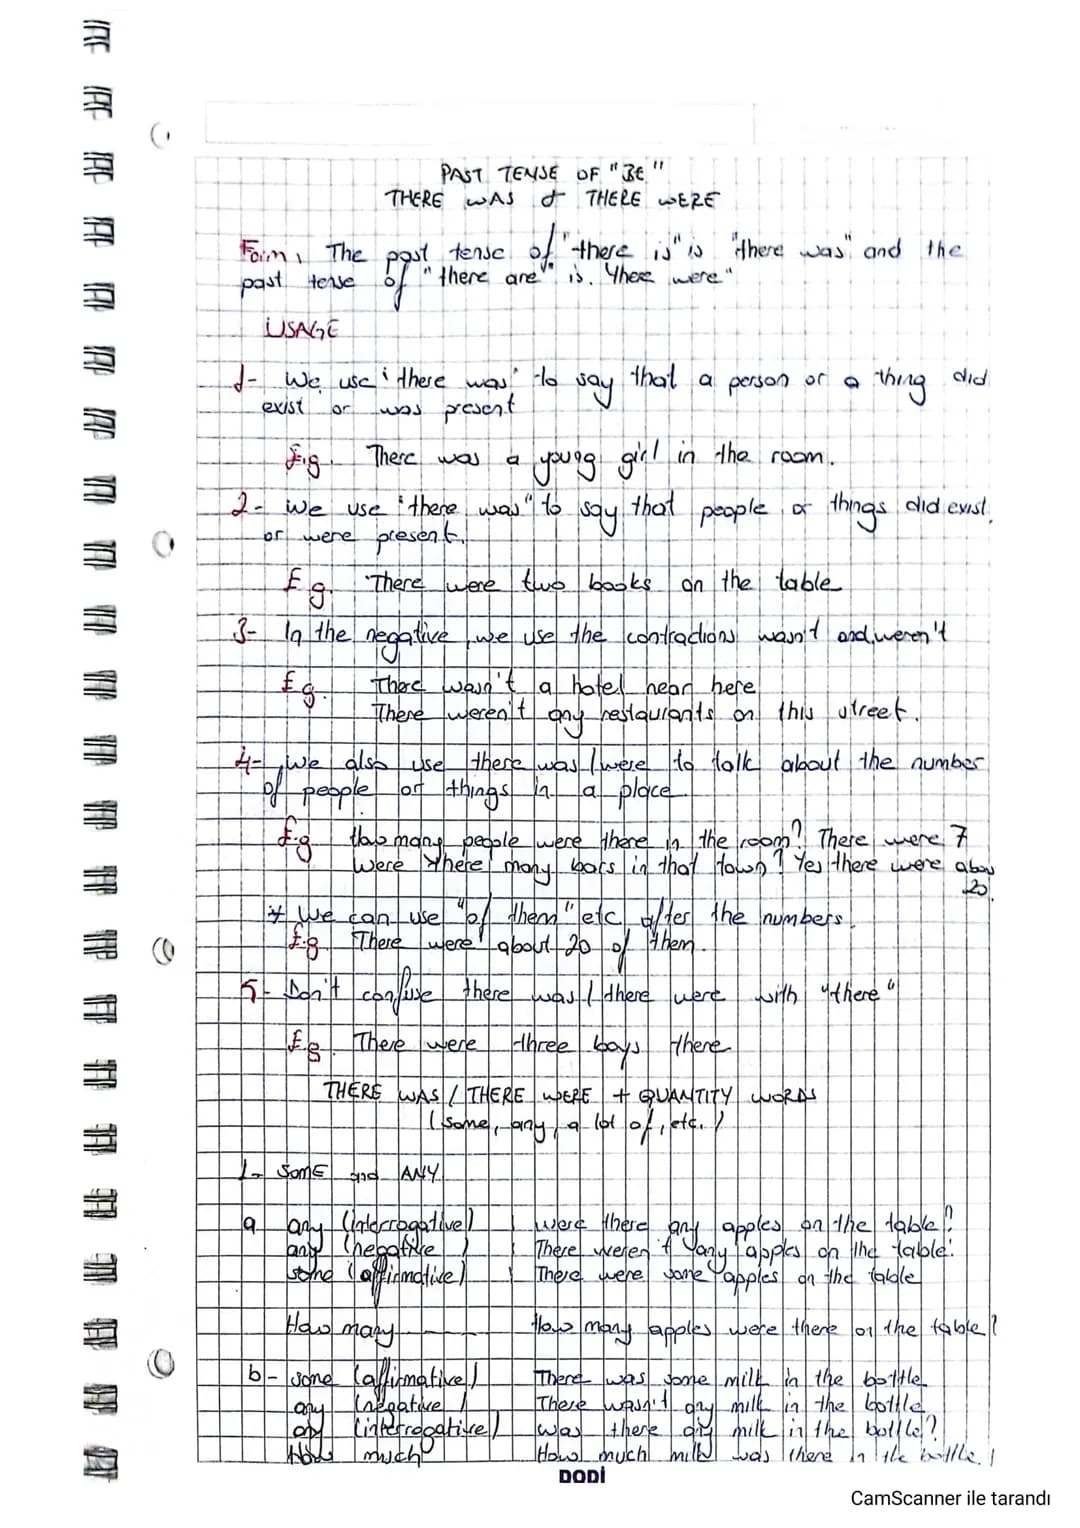 PAST TENSE OF "BE"
THERE WAS & THERE WERE
Form, The past tense of "there is" is "there was" and the
past tense of "there are" is. "there were"
USAGE
1- We use "there was" to say that a person or a thing did
exist or was present
E.g. There was a young girl in the room.
2- We use "there was" to say that people or things did exist
or were present.
E.g. There were two books on the table
3- In the negative, we use the contractions wasn't and weren't
E.g. There wasn't a hotel near here
There weren't any restaurants on this street.
4- We also use there was / were to talk about the number
of people or things in a place
E.g How many people were there in the room? There were 7
Were there many bars in that town? Yes there were abou
20
* We can use "of them" etc after the numbers.
E.g. There were about 20 of them.
5- Don't confuse there was / there were with "there"
E.g There were three boys there
THERE WAS / THERE WERE + QUANTITY WORDS
(some, any, a lot of, etc.)
1- SOME and ANY
a any (interrogative) Were there any apples on the table?
any (negative) There weren't any apples on the table.
some (affirmative) There were some apples on the table
How many How many apples were there on the table?
b- some (affirmative) There was some milk in the bottle
any (negative) There wasn't any milk in the bottle
any (interrogative) was there any milk in the bottle?
How much How much milk was there in the bottle.
DODİ
CamScanner ile tarandı